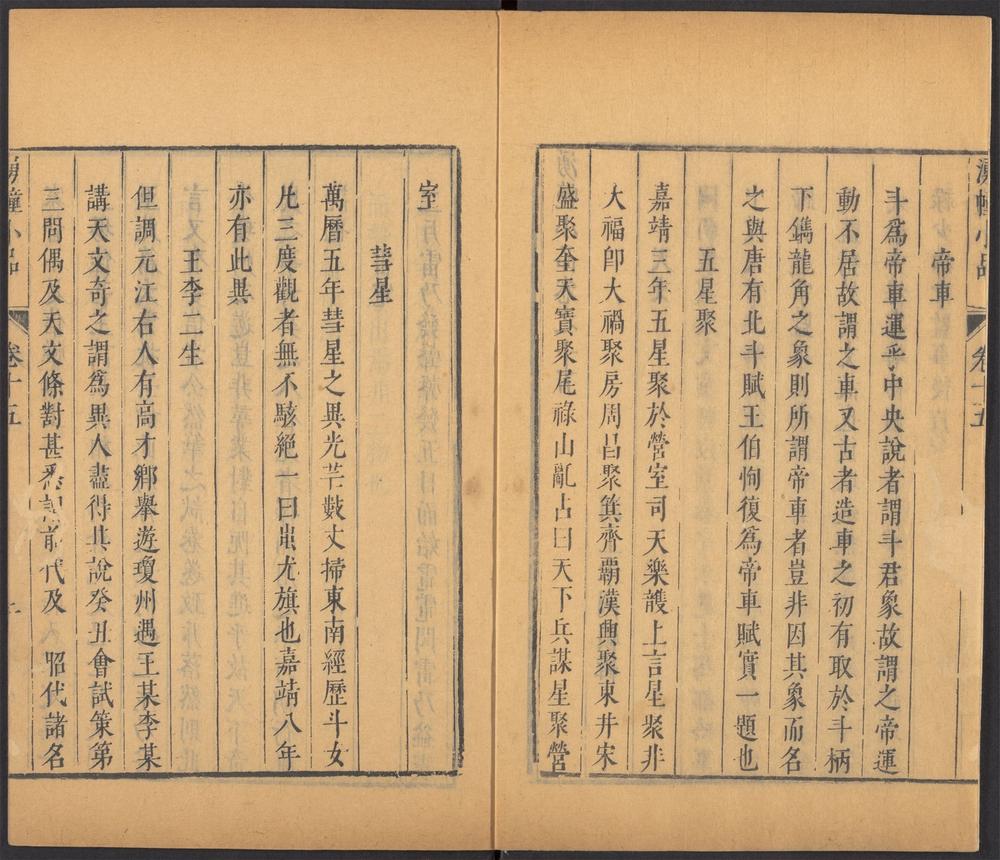 湧幢小品 卷十五
帝車
斗為帝車運乎中央說者謂斗君象故謂之帝運
動不居故謂之車又古者造車之初有取於斗柄
下鐫龍角之象則所謂帝車者豈非因其象而名
之與唐有北斗賦王伯恂復為帝車賦實一題也
五星聚
嘉靖三年五星聚於營室司天樂頀上言星聚非
大福卽大禍聚房周昌聚箕齊霸漢興聚東井宋
盛聚奎天寶聚尾祿山亂占曰天下兵謀星聚營
室
彗星
萬曆五年彗星之異光芒數丈掃東南經歷斗女
凡三度觀者無不駭絕一曰蚩尤旗也嘉靖八年
亦有此異
王李二生
但調元江右人有高才鄉舉遊瓊州遇王某李某
講天文奇之謂為異人盡得其說癸丑會試策第
三問偶及天文條對甚悉前代及 昭代諸名
湧幢小品 卷十五